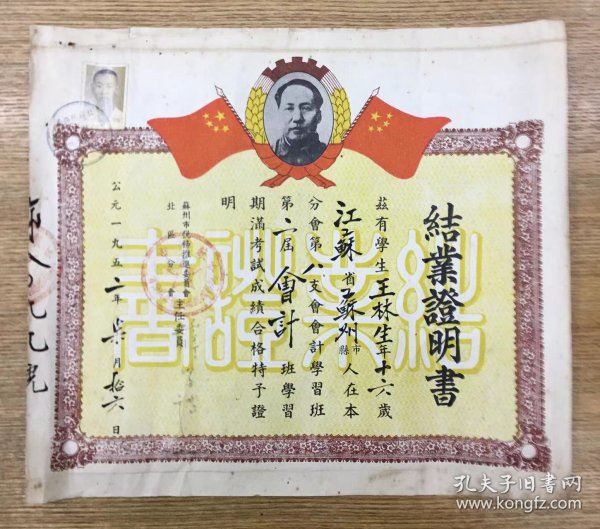 結業證明書
茲有學生王林生年十六歲
江蘇省蘇州市縣人在本
分會第八支會會計學習班
第二屆會計班學習
期滿考試成績合格特予證
明
蘇州市稅務推進委員會
北區分會
主任委員
公元一九五二年柒月拾六日
結業證書
孔夫子旧书网
www.kongfz.com